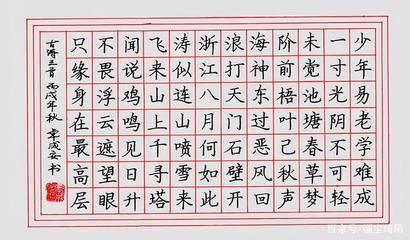 少年易老学难成
一寸光阴不可轻
未觉池塘春草梦
阶前梧叶已秋声
海神东过恶风回
浪打天门石壁开
浙江八月何如此
涛似连山喷雪来
飞来山上千寻塔
闻说鸡鸣见日升
不畏浮云遮望眼
只缘身在最高层
古诗三首 丙戌年秋 书
百家号/